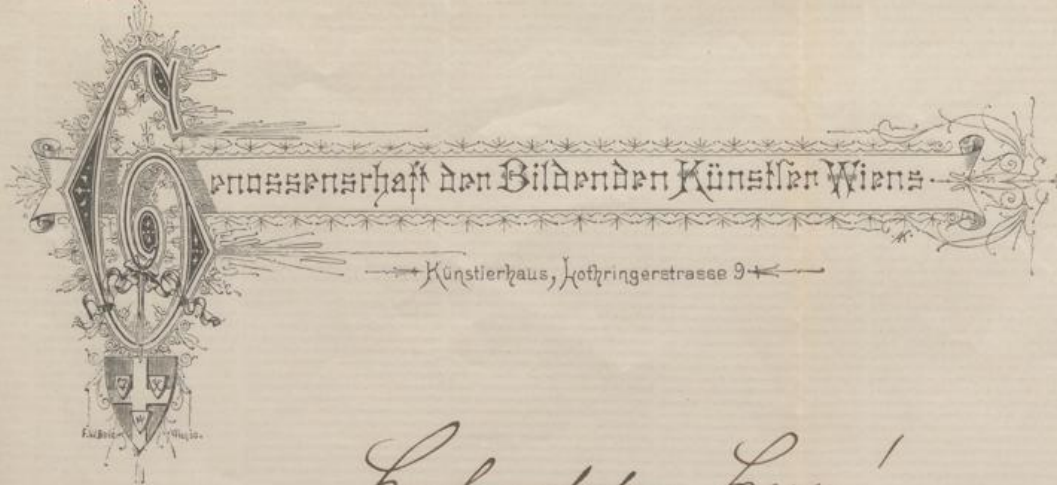 Genossenschaft der Bildenden Künstler Wiens
Künstlerhaus, Lothringerstrasse 9